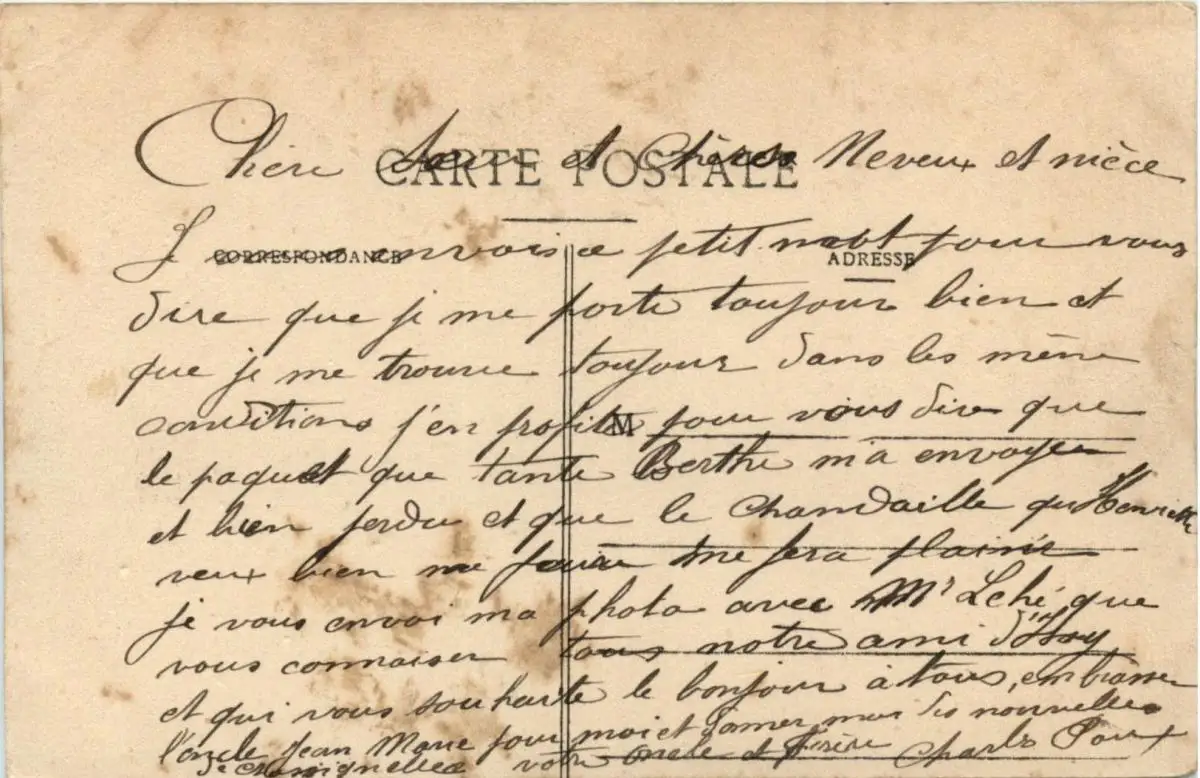 CARTE POSTALE
CORRESPONDANCE
ADRESSE
M
Chère Sœur et Chères Neveux et nièce
Je vous envois ce petit mot pour vous
dire que je me porte toujour bien et
que je me trouve toujour dans les même
conditions j'en profite pour vous dire que
le paquet que tante Berthe m'a envoyer
et bien perdu et que le chandaille que Henriette
veux bien me faire me fera plaisir
je vous envoi ma photo avec Mr Lché que
vous connaiser tous notre ami d'Issy
et qui vous souhaite le bonjour à tous, embrasser
l'oncle Jean Marie pour moi et donner moi des nouvelles
de votre oncle et frère Charls